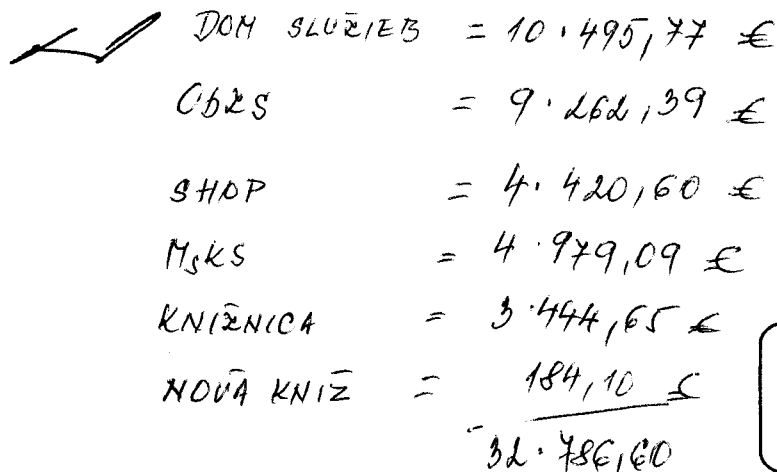 DOM SLUŽIEB = 10.495,77 €
ObZS = 9.262,39 €
SHOP = 4.420,60 €
MsKS = 4.979,09 €
KNIŽNICA = 3.444,65 €
NOVÁ KNIŽ = 184,10 €
32.786,60